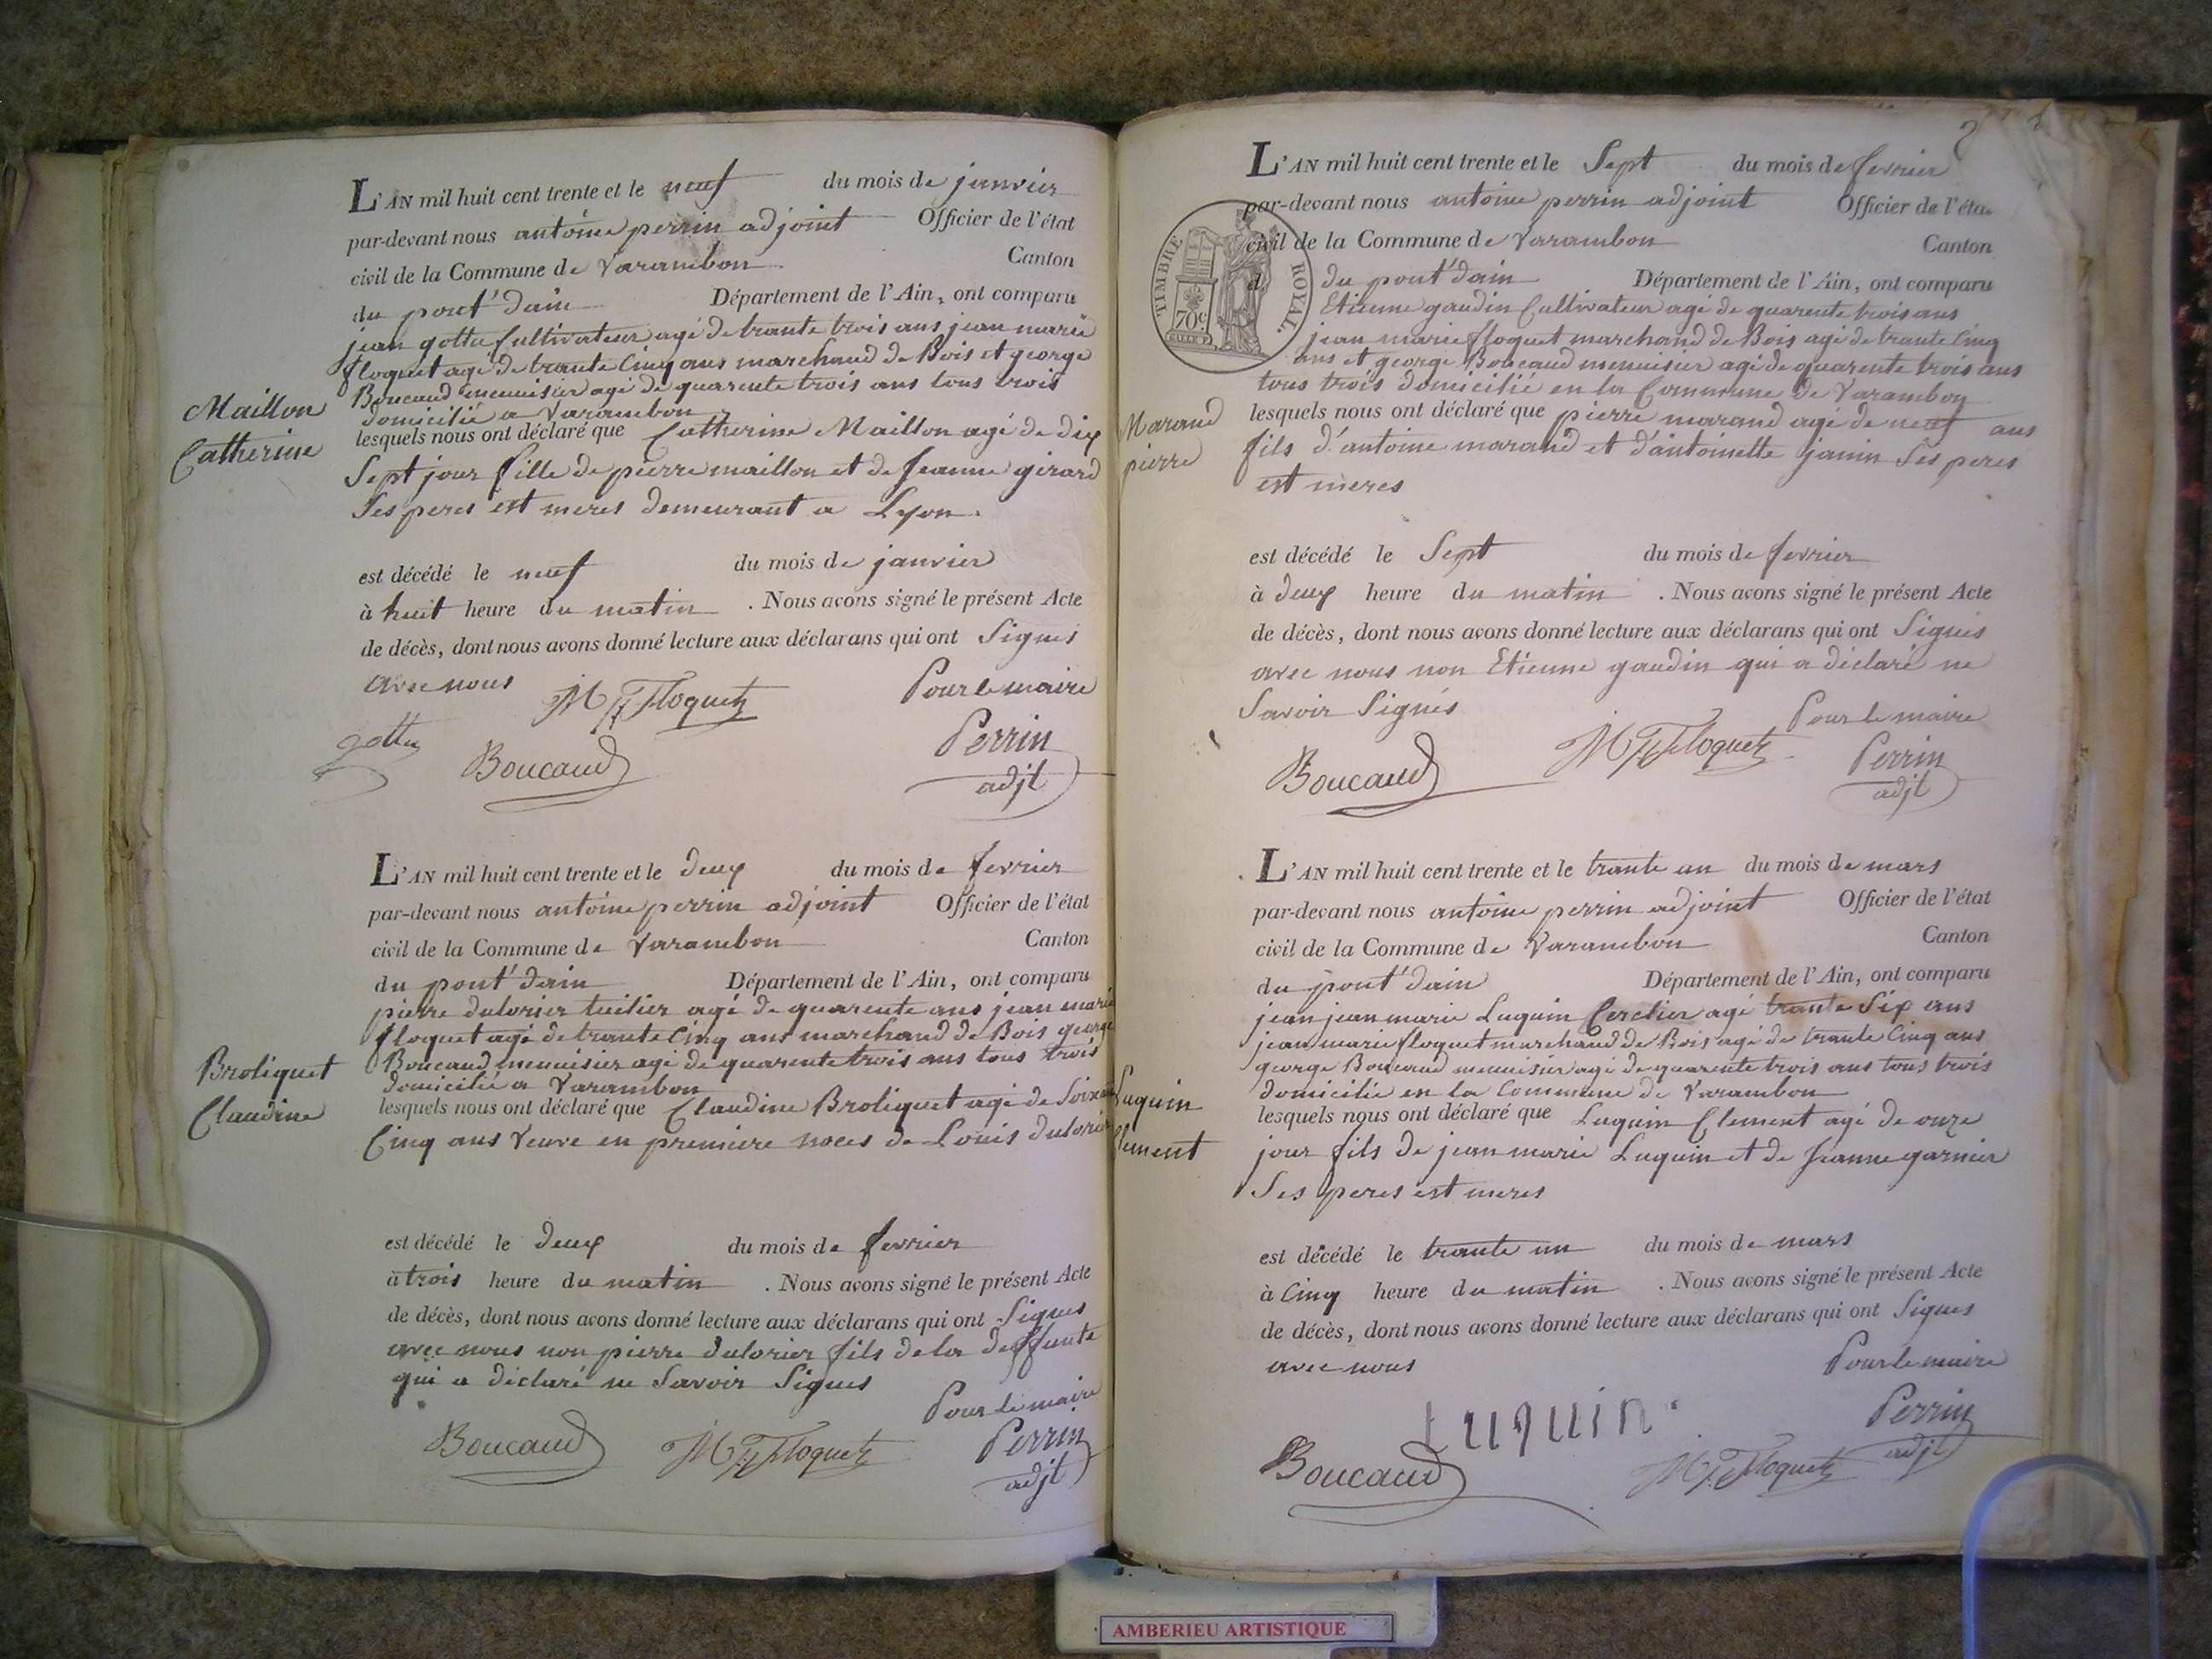 L'AN mil huit cent trente et le neuf du mois de janvier
par-devant nous antoine perrin adjoint Officier de l'état
civil de la Commune de Varambon Canton
du pont'dain Département de l'Ain, ont comparu
jean gottu Cultivateur agé de trante trois ans jean marie
floquet agé de trante Cinq ans marchand de Bois et george
Boucaud menuisier agé de quarente trois ans tous trois
domicilié a Varambon
Maillon
Catherine
lesquels nous ont déclaré que Catherine Maillon agé de dix
Sept jour fille de pierre maillon et de Jeanne girard
Ses peres est meres demeurant a Lyon.
est décédé le neuf du mois de janvier
à huit heure du matin . Nous avons signé le présent Acte
de décès, dont nous avons donné lecture aux déclarans qui ont Signés
avec nous
Pour le maire
gottu
Boucaud
Floquet
Perrin
adjt
L'AN mil huit cent trente et le deux du mois de fevrier
par-devant nous antoine perrin adjoint Officier de l'état
civil de la Commune de Varambon Canton
du pont'dain Département de l'Ain, ont comparu
pierre dulorier tuilier agé de quarente ans jean marie
floquet agé de trante Cinq ans marchand de Bois george
Boucaud menuisier agé de quarente trois ans tous trois
domicilié a Varambon
Broliquet
Claudine
lesquels nous ont déclaré que Claudine Broliquet agé de
Cinq ans Veuve en premiere noces de Louis dulorier
est décédé le deux du mois de fevrier
à trois heure du matin . Nous avons signé le présent Acte
de décès, dont nous avons donné lecture aux déclarans qui ont Signes
avec nous non pierre dulorier fils de la deffunte
qui a déclaré ne Savoir Signes
Pour le maire
Boucaud
Floquet
Perrin
adjt
2
L'AN mil huit cent trente et le Sept du mois de fevrier
par-devant nous antoine perrin adjoint Officier de l'état
civil de la Commune de Varambon Canton
du pont'dain Département de l'Ain, ont comparu
TIMBRE ROYAL
70c
Etienne gaudin Cultivateur agé de quarente trois ans
jean marie floquet marchand de Bois agé de trante Cinq
ans et george Boucaud menuisier agé de quarente trois ans
tous trois domicilié en la Commune de Varambon
Marand
pierre
lesquels nous ont déclaré que pierre marand agé de neuf ans
fils d'antoine marand et d'antoinette janin Ses peres
est meres
est décédé le Sept du mois de fevrier
à deux heure du matin . Nous avons signé le présent Acte
de décès, dont nous avons donné lecture aux déclarans qui ont Signés
avec nous non Etienne gaudin qui a déclaré ne
Savoir Signés
Pour le maire
Boucaud
Floquet
Perrin
adjt
L'AN mil huit cent trente et le trante un du mois de mars
par-devant nous antoine perrin adjoint Officier de l'état
civil de la Commune de Varambon Canton
du pont'dain Département de l'Ain, ont comparu
jean jean marie Luquin Cerclier agé trante Six ans
jean marie floquet marchand de Bois agé de trante Cinq ans
george Boucaud menuisier agé de quarente trois ans tous trois
domicilié en la Commune de Varambon
Luquin
Clement
lesquels nous ont déclaré que Luquin Clement agé de onze
jour fils de jean marie Luquin et de Jeanne garnier
Ses peres est meres
est décédé le trante un du mois de mars
à Cinq heure du matin . Nous avons signé le présent Acte
de décès, dont nous avons donné lecture aux déclarans qui ont Signes
avec nous
Pour le maire
Luquin
Boucaud
Floquet
Perrin
adjt
AMBERIEU ARTISTIQUE